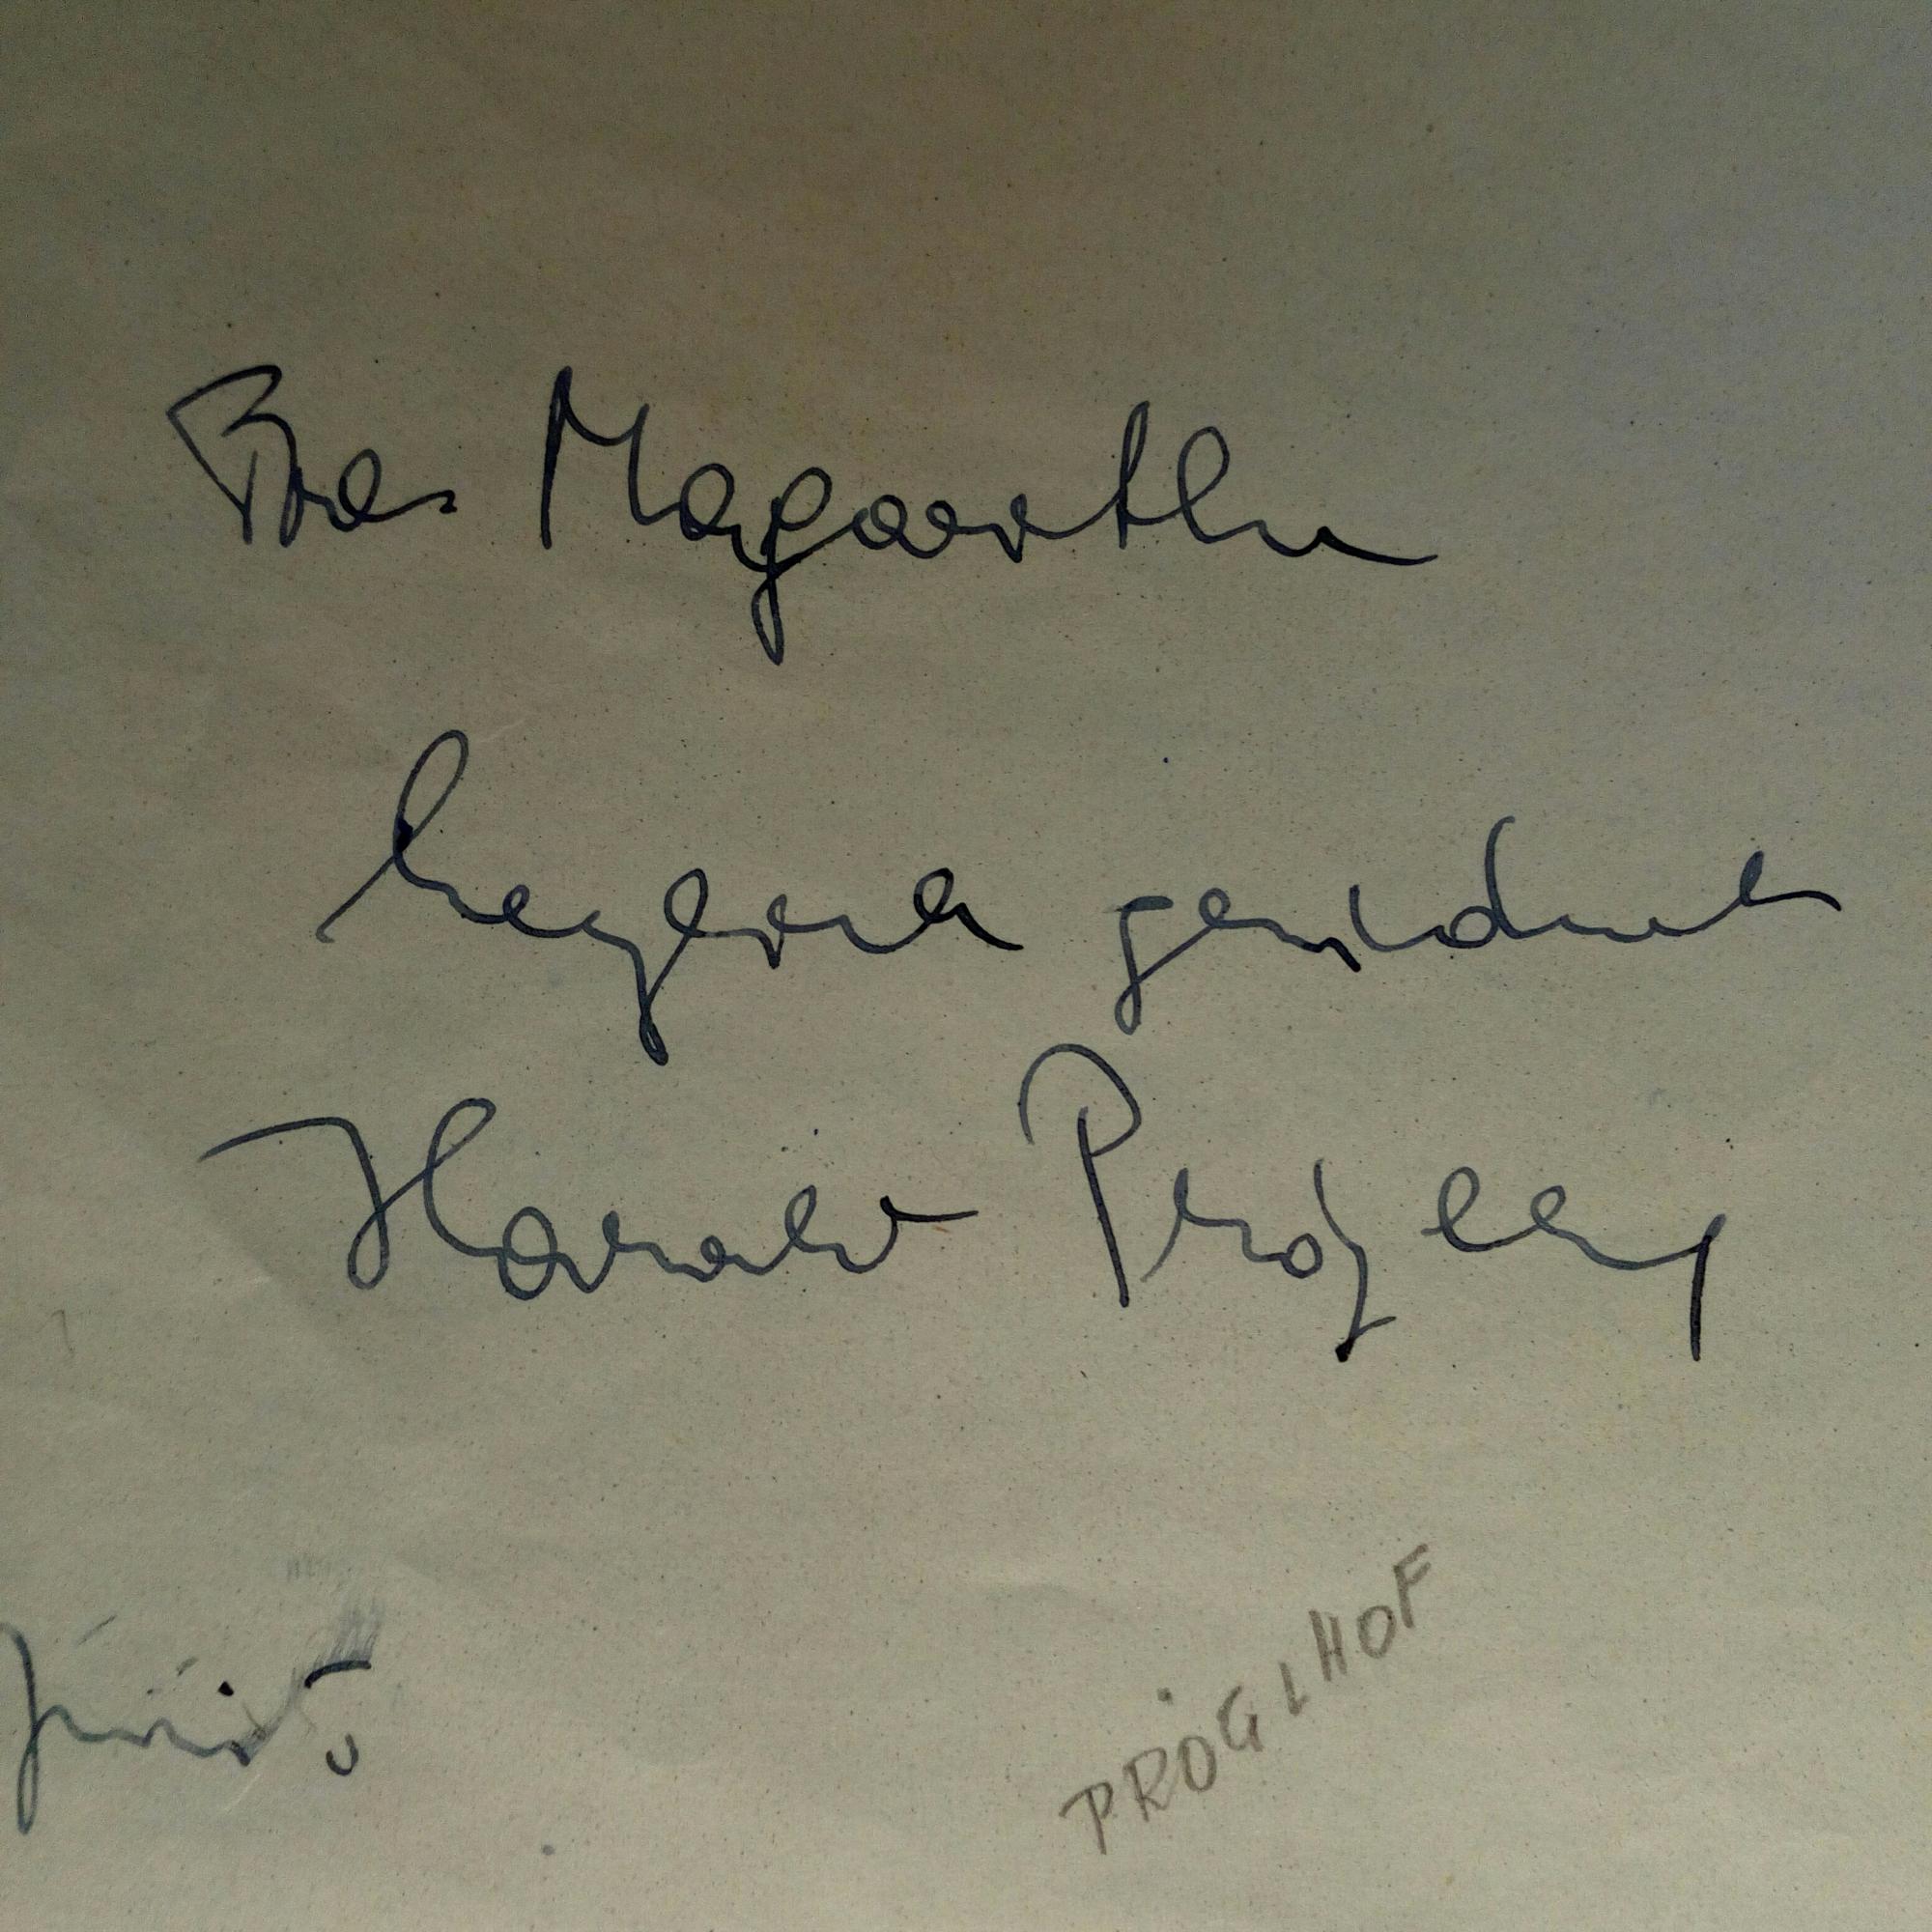 Frau Magarethe
herzlich gewidmet
Harald Pröglhof
PRÖGLHOF